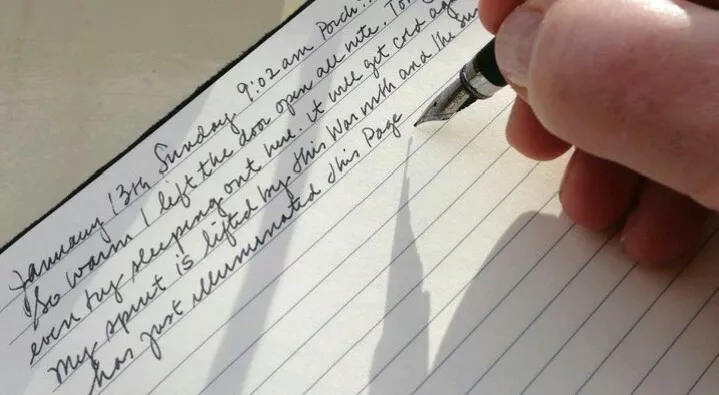 January 13th Sunday 9:02am Porch
So warm I left the door open all nite.
even try sleeping out here. it will get cold
My spirit is lifted by this Warmth and the Sun
has just illuminated this Page